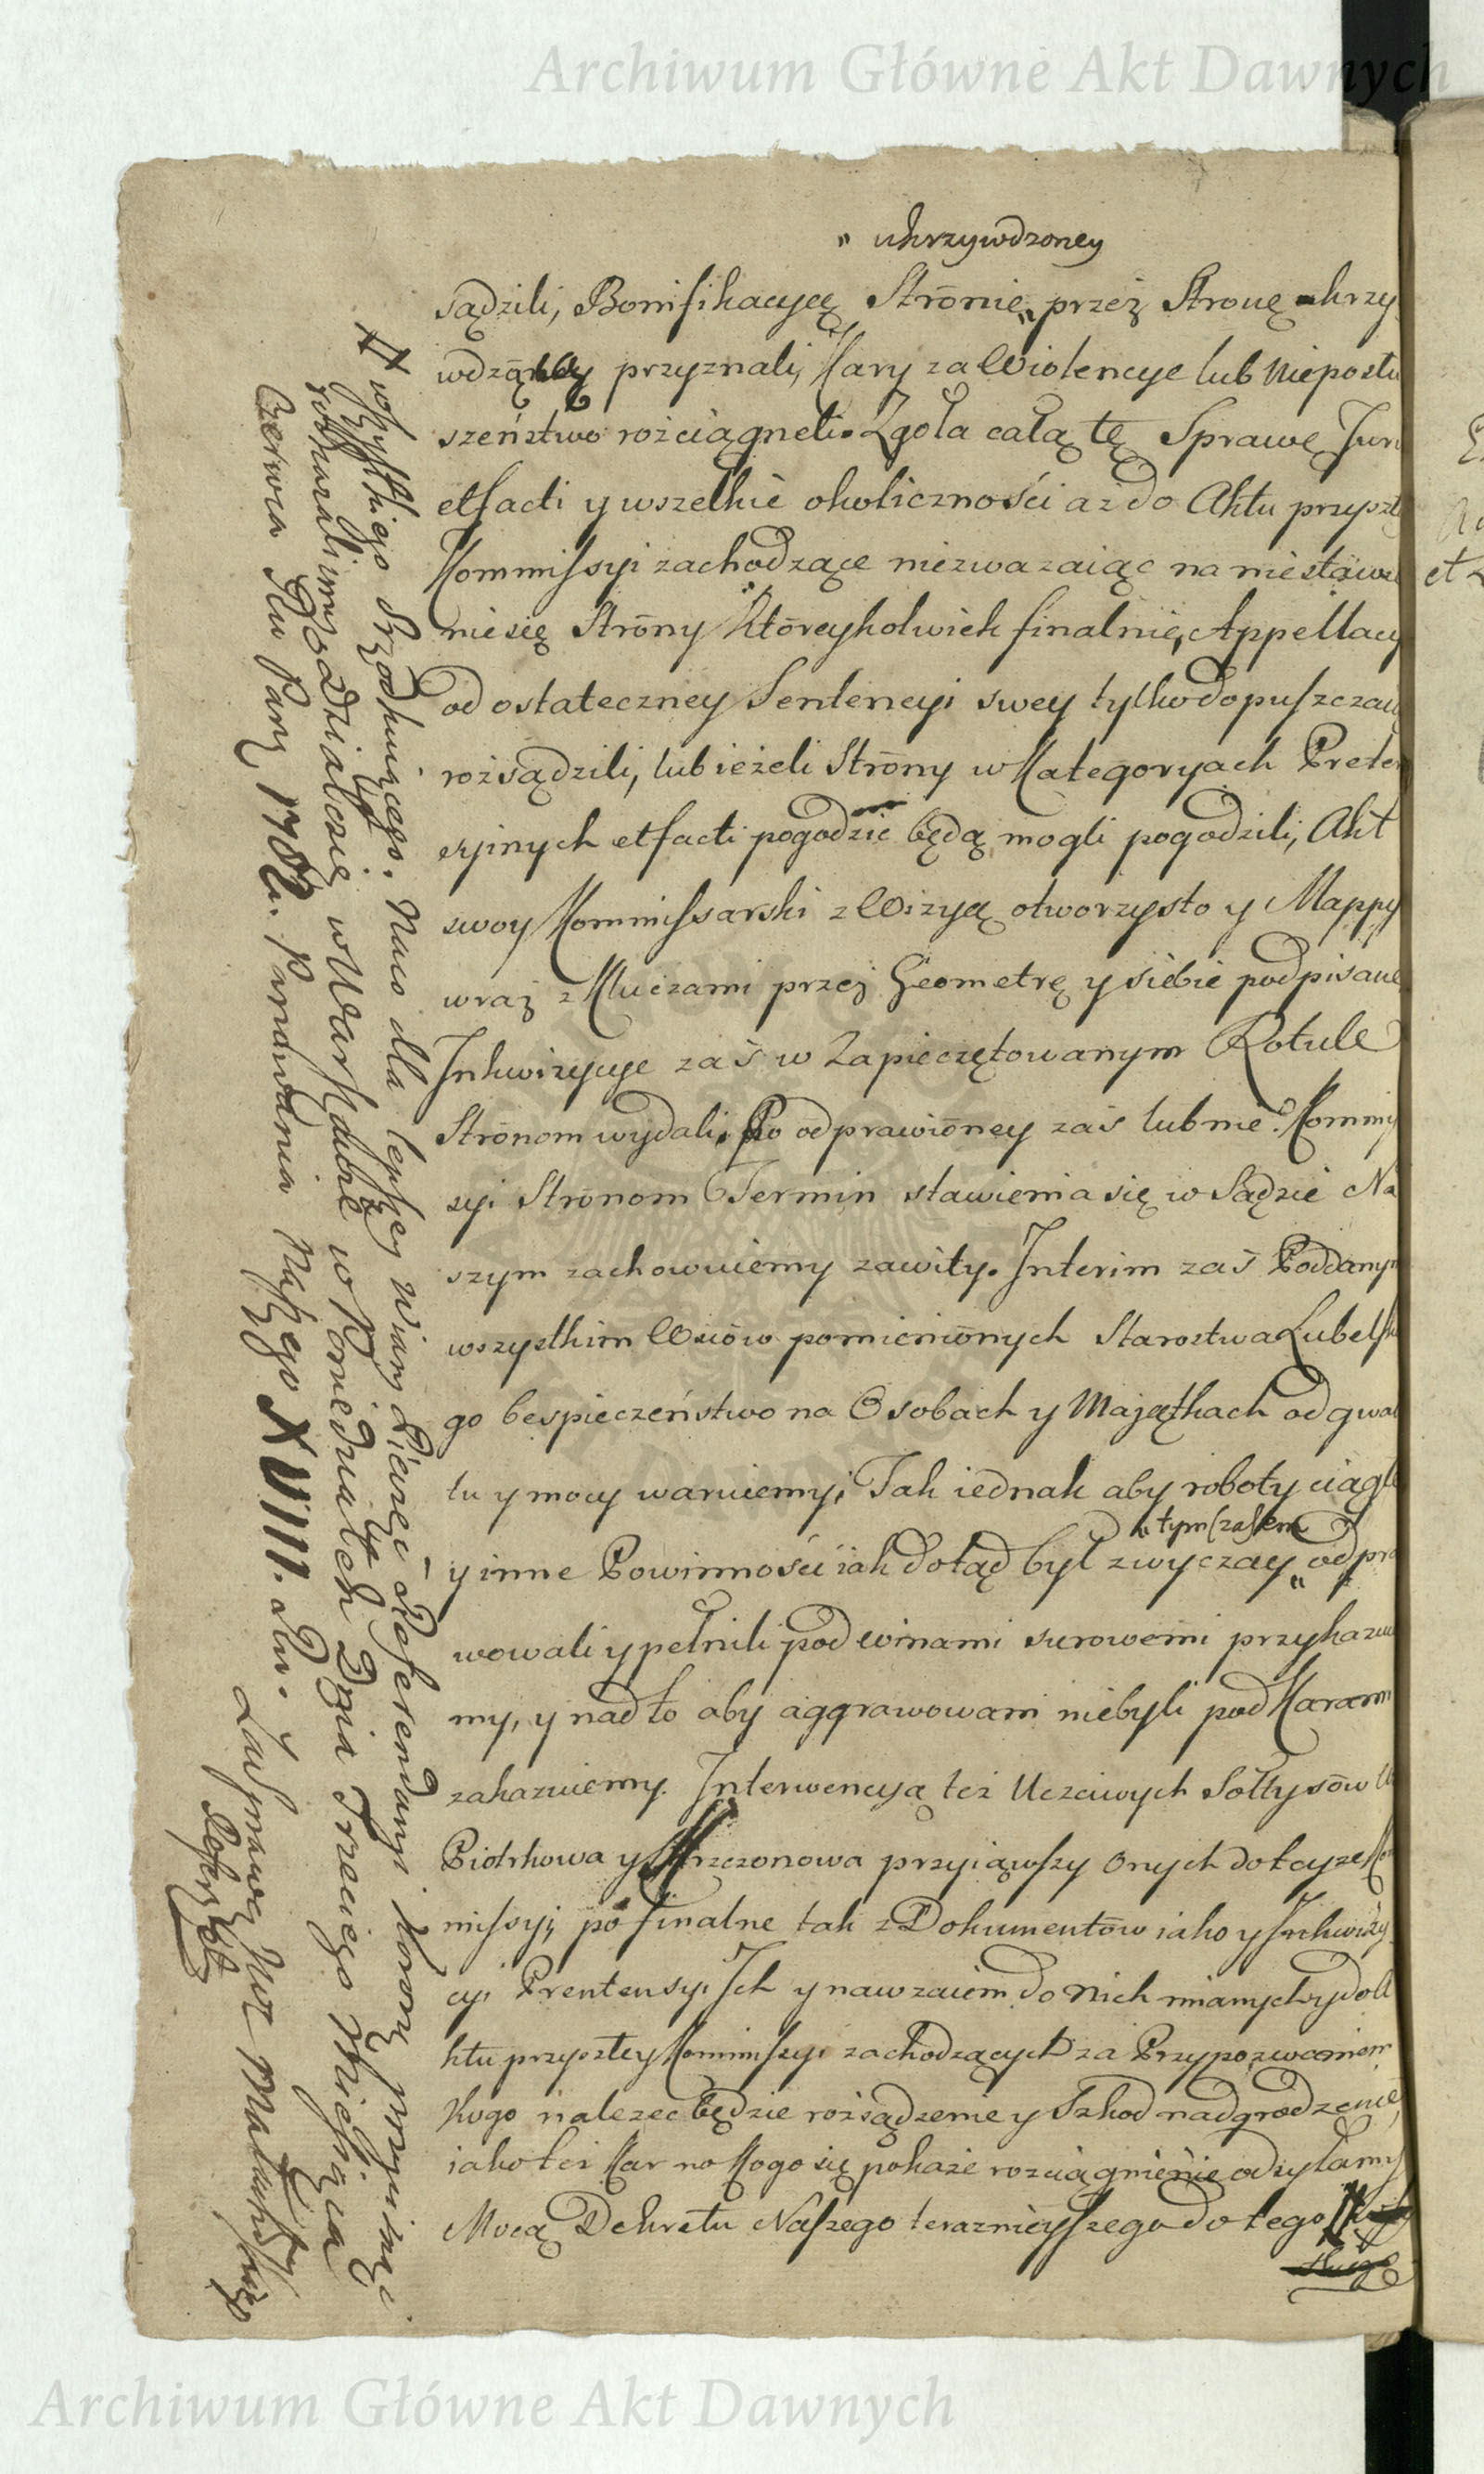 Archiwum Główne Akt Dawnych
" ukrzywdzoney
sądzili, Bonifikacyą Strōnie „ przez Stronę ukrzy
wdzōną przyznali, Kary za Wiolencye lub Nieposłu
szeństwo rozciągneli. Zgoła całą tę Sprawę Juri
et facti y wszelkie okoliczności aż do Aktu przyszł
Kommissyi zachodzące niezwazaiąc na niestawa
nie się Strōny Ktōreykolwiek finalnie, Appellacy
od ostateczney Sentencyi swey tylko dopuszczaią
rozsądzili, lub ieżeli Strōny w Kategoryach Preten
syinych et facti pogodzić będą mogli pogodzili, Akt
swoy Kommissarski z Wizyą otworzysto y Mappy
wraz z Kluczami przez Geometrę y siebie podpisane
Inkwizycye zaś w Zapieczętowanym Rotule
Strōnom wydali. Po odprawiōney zaś lub nie Kommis
syi Strōnom Termin stawienia się w Sądzie Na
szym zachowuiemy zawity. Interim zaś Poddanym
wszystkim Wsiōw pomieniōnych Starostwa Lubelskie
go bespieczeństwo na Osobach y Majątkach od gwał
tu y mocy waruiemy; Tak iednak aby roboty ciągłe
" tymczasem
y inne Powinności iak dotąd był zwyczay „ odpra
wowali y pełnili pod winami surowemi przykazuie
my, y nad to aby aggrawowani niebyli pod Karami
zakazuiemy. Interwencyą też Uczciwych Sołtysōw z
Piotrkowa y Krzczonowa przyiąwszy Onych do teyże Kom
missyi, po finalne tak z Dokumentōw iako y Inkwizy
cyi Prentensyi Ich y nawzaiem do Nich mianych y do A
ktu przyszłey Kommissyi zachodzących za Przypozwaniem
Kogo nalezec będzie rozsądzenie y Szkod nadgrodzenie,
iako też Kar na Kogo się pokaże rozciągnienie odsyłamy
Mocą Dekretu Naszego teraznieyszego do tego #
# wszystkiego Srzodkuiącego. Naco dla lepszey Wiary Pieczęć Referendaryi Koronney przycisnąć
rozkazaliśmy. Działo się w Warszawie w Poniedziałek Dnia Trzeciego Miesiąca
Czerwca Roku Pans: 1782. Panowania Naszego XVIII. Roku.
Za Sprawą
Archiwum Główne Akt Dawnych